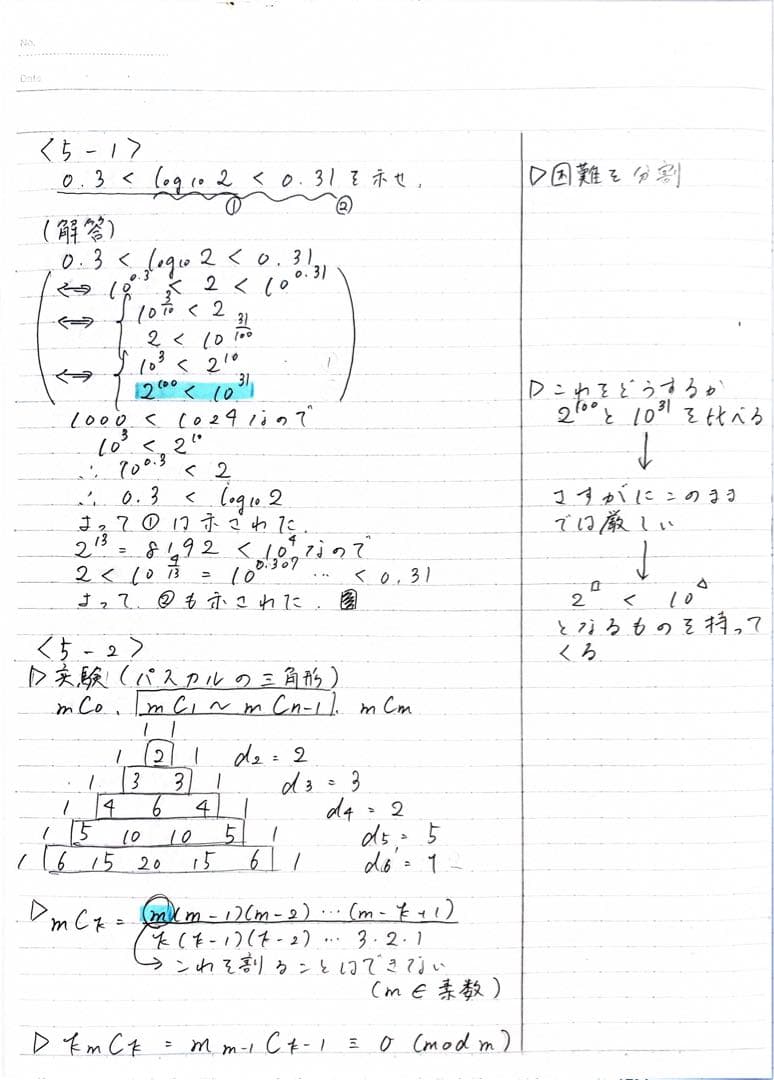 No.
Date
<5-1>
0.3 < log₁₀2 < 0.31を示せ.
① ②
(解答)
0.3 < log₁₀2 < 0.31
⟺ 10^0.3 < 2 < 10^0.31
⟺ { 10^(3/10) < 2
2 < 10^(31/100)
⟺ { 10^3 < 2^10
2^100 < 10^31
1000 < 1024なので
10^3 < 2^10
∴ 10^0.3 < 2
∴ 0.3 < log₁₀2
よって①は示された.
2^13 = 8192 < 10^4なので
2 < 10^(4/13) = 10^0.307 … < 0.31
よって ②も示された.
▷困難を分割
▷これをどうするか
2^100と10^31を比べる
↓
さすがにこのまま
では厳しい
↓
2^□ < 10^△
となるものを持って
くる
<5-2>
▷実験(パスカルの三角形)
mC0, mC1 ~ mCn-1, mCm
1 1
1 2 1 d2 = 2
1 3 3 1 d3 = 3
1 4 6 4 1 d4 = 2
1 5 10 10 5 1 d5 = 5
1 6 15 20 15 6 1 d6 = 1
▷mCk = m(m-1)(m-2) … (m-k+1)
k(k-1)(k-2) … 3・2・1
→ これを割ることはできない
(m ∈ 素数)
▷ k mCk = m m-1Ck-1 ≡ 0 (mod m)